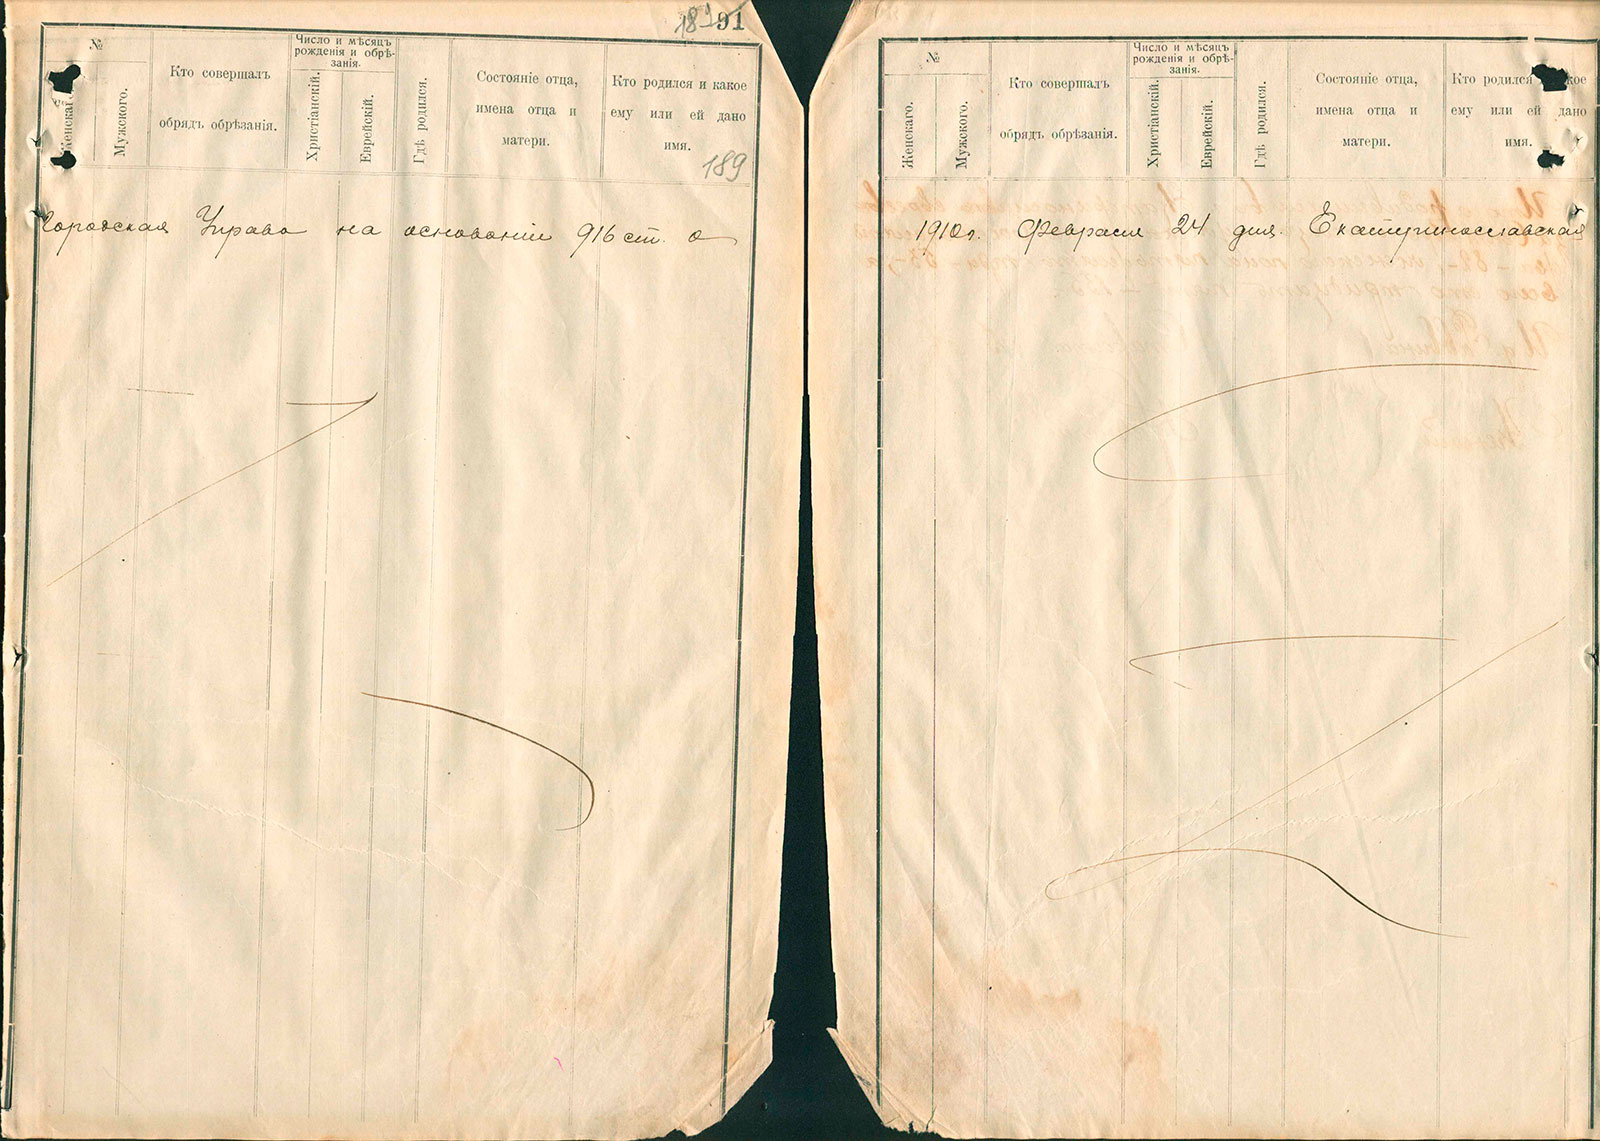 91
189
№
Женскаго.
Мужского.
Кто совершалъ
обрядъ обрѣзанія.
Число и мѣсяцъ
рожденія и обрѣ-
занія.
Христіанскій.
Еврейскій.
Гдѣ родился.
Состояніе отца,
имена отца и
матери.
Кто родился и какое
ему или ей дано
имя.
189
Городская Управа на основаніи 916 ст. о
№
Женскаго.
Мужского.
Кто совершалъ
обрядъ обрѣзанія.
Число и мѣсяцъ
рожденія и обрѣ-
занія.
Христіанскій.
Еврейскій.
Гдѣ родился.
Состояніе отца,
имена отца и
матери.
Кто родился кое
ему или ей дано
имя.
1910 г. Февраля 24 дня. Екатеринославская